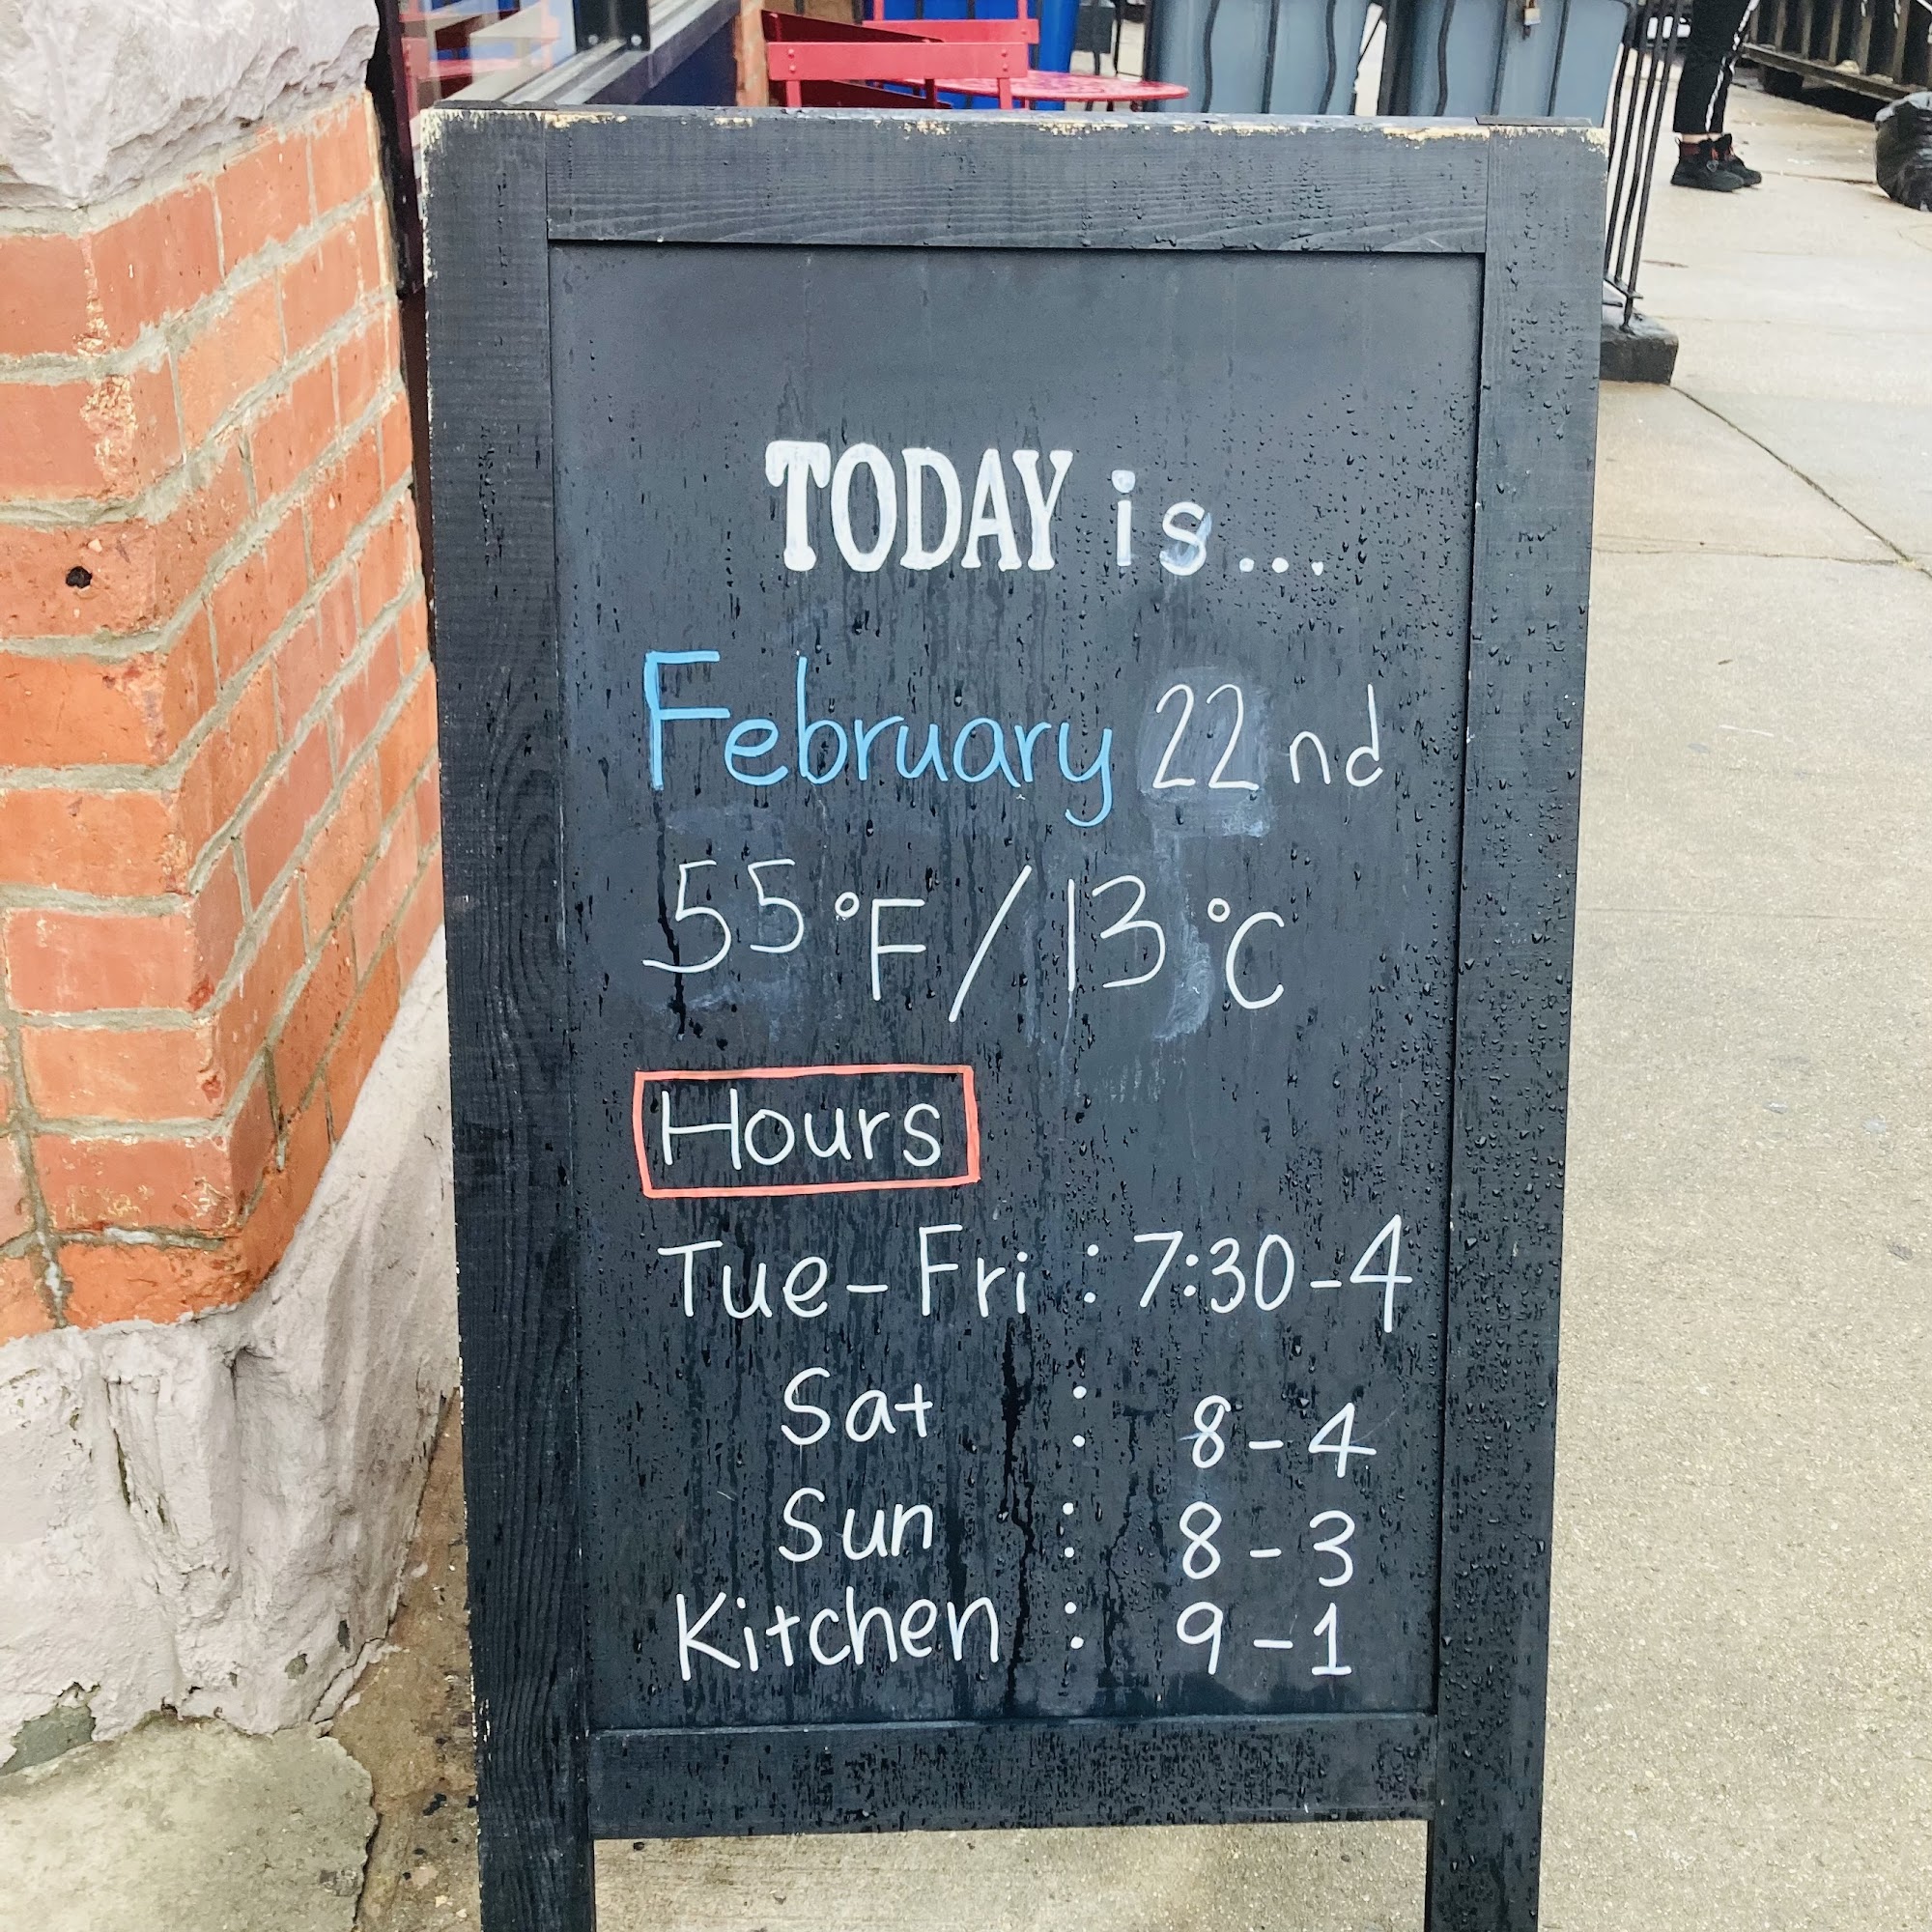 TODAY is...
February 22nd
55°F/13°C
Hours
Tue-Fri : 7:30-4
Sat : 8-4
Sun : 8-3
Kitchen : 9-1